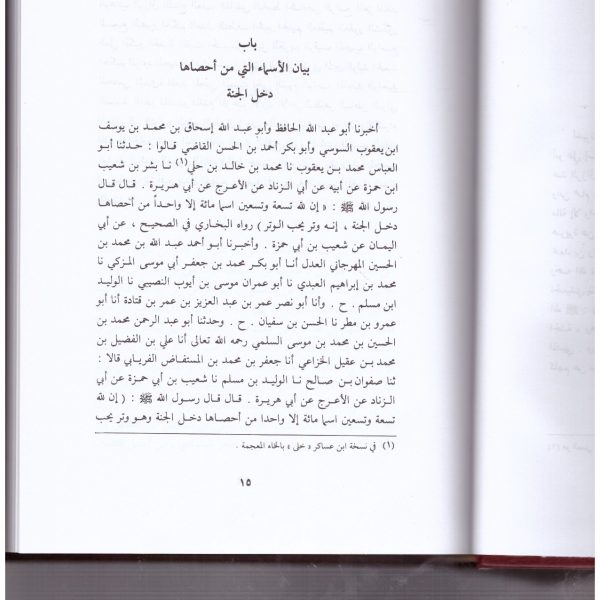 باب
بيان الأسماء التي من أحصاها
دخل الجنة
أخبرنا أبو عبد الله الحافظ وأبو عبد الله إسحاق بن محمد بن يوسف
ابن يعقوب السوسي وأبو بكر أحمد بن الحسن القاضي قالوا : حدثنا أبو
العباس محمد بن يعقوب نا محمد بن خالد بن حلي(١) نا بشر بن شعيب
ابن حمزة عن أبيه عن أبي الزناد عن الأعرج عن أبي هريرة . قال قال
رسول الله ﷺ : « إن لله تسعة وتسعين اسما مائة إلا واحداً من أحصاها
دخل الجنة ، إنه وتر يحب الوتر » رواه البخاري في الصحيح ، عن أبي
اليمان عن شعيب بن أبي حمزة . وأخبرنا أبو أحمد عبد الله بن محمد بن
الحسين المهرجاني العدل أنا أبو بكر محمد بن جعفر أبي موسى المزكي نا
محمد بن إبراهيم العبدي نا أبو عمران موسى بن أيوب النصيبي نا الوليد
ابن مسلم . ح . وأنا أبو نصر عمر بن عبد العزيز بن عمر بن قتادة أنا أبو
عمرو بن مطر نا الحسن بن سفيان . ح . وحدثنا أبو عبد الرحمن محمد بن
الحسين بن محمد بن موسى السلمي رحمه الله تعالى أنا علي بن الفضيل بن
محمد بن عقيل الخزاعي أنا جعفر بن محمد بن المستفاض الفريابي قالا :
ثنا صفوان بن صالح نا الوليد بن مسلم نا شعيب بن أبي حمزة عن أبي
الزناد عن الأعرج عن أبي هريرة . قال قال رسول الله ﷺ : ( إن لله
تسعة وتسعين اسما مائة إلا واحدا من أحصاها دخل الجنة وهو وتر يحب
(١) في نسخة ابن عساكر « خلى » بالخاء المعجمة .
١٥